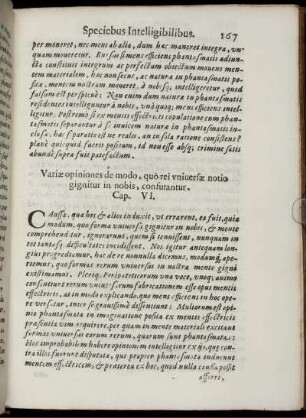 Speciebus Intelligibilibus. 167
per moueret, nec mens ab alia, dum hæc maneret integra, vn-
quam moueretur. Rursus si mens efficiens phantasmatis adiun-
cta constituit integrum ac perfectum obiectum mouens men-
tem materialem, hæc non sens, ac natura in phantasmatis po-
sita, mentem nostram mouent, à nobisq; intelligeretur, quod
falsum est per se. Non enim dum natura in phantasmatis
residentes intelliguntur à nobis, vnà quoq; mens efficiens intel-
ligitur. Postremò si ex mentis effectricis copulatione cum phan-
tasmatis separatur à singularibus natura in phantasmatis in-
clusa, hæc separatio est ne realis, an in sola ratione consistens?
planè quicquid fueris positum, id non esse absq; crimine satis
abundè supra fuit patefactum.
Variæ opiniones de modo, quò rei vniuersæ notio
gignitur in nobis, confutantur.
Cap. VI.
CAussa, qua hos & alios induxit, vt errarent, ea fuit, quia
modum, quo forma vniuersa gignitur in nobis, & mente
comprehenditur, ignorarunt, quem si tenuissent, nunquam in
tot tantasq; difficultates incidissent. Nos igitur antequam lon-
gius progrediamur, hac de re nonnulla dicemus, modumq; ape-
riemus, quo formas rerum vniuersas in nostra mente gigni
existimamus. Pleriq; Peripateticorum vna voce, vnoq; animo
consentiunt rerum vniuersarum fabricationem esse opus mentis
effectricis, at in modo explicando, quo mens efficiens in hoc opere
versetur, inter se grauissimè dissentiunt: Multorum est opi-
nio phantasmata in imaginatione posita ex mentis effectricis
præsentia vim acquirere, per quam in mente materiali excitant
formas vniuersas earum rerum, quarum sunt phantasmata:
cuius opinionis deformitatem intellegitur ex ijs, quæ con-
tra illos fuerunt disputata, qui propter phantasmata inducunt
mentem effectricem; & præterea ex hoc, quod nulla causa possit
afferri,